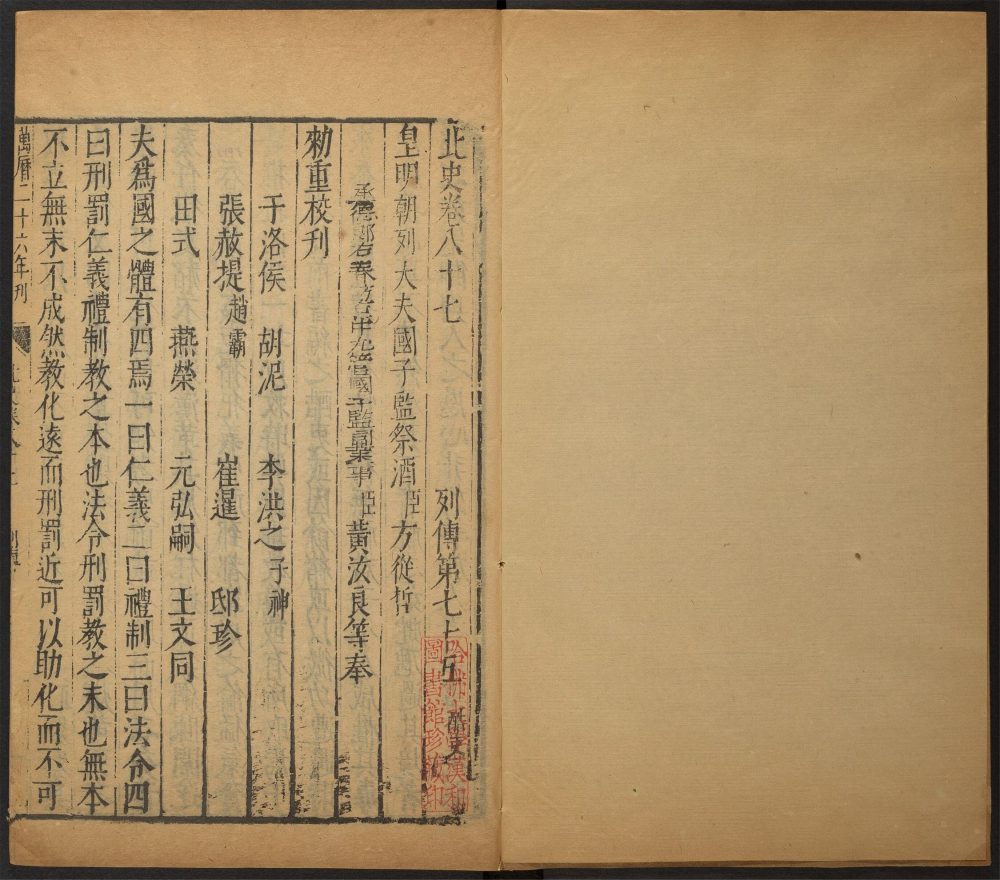 北史卷八十七 列傳第七十五 酷吏
皇明朝列大夫國子監祭酒臣方從哲
承德郎右春坊右中允管國子監司業事臣黃汝良等奉
勑重校刊
于洛侯 胡泥 李洪之子神
張赦提趙霸 崔暹 邸珍
田式 燕榮 元弘嗣 王文同
夫爲國之體有四焉一曰仁義二曰禮制三曰法令四
曰刑罰仁義禮制教之本也法令刑罰教之末也無本
不立無末不成然教化遠而刑罰近可以助化而不可
萬曆二十六年刊
哈佛大學漢和
圖書館珍藏印